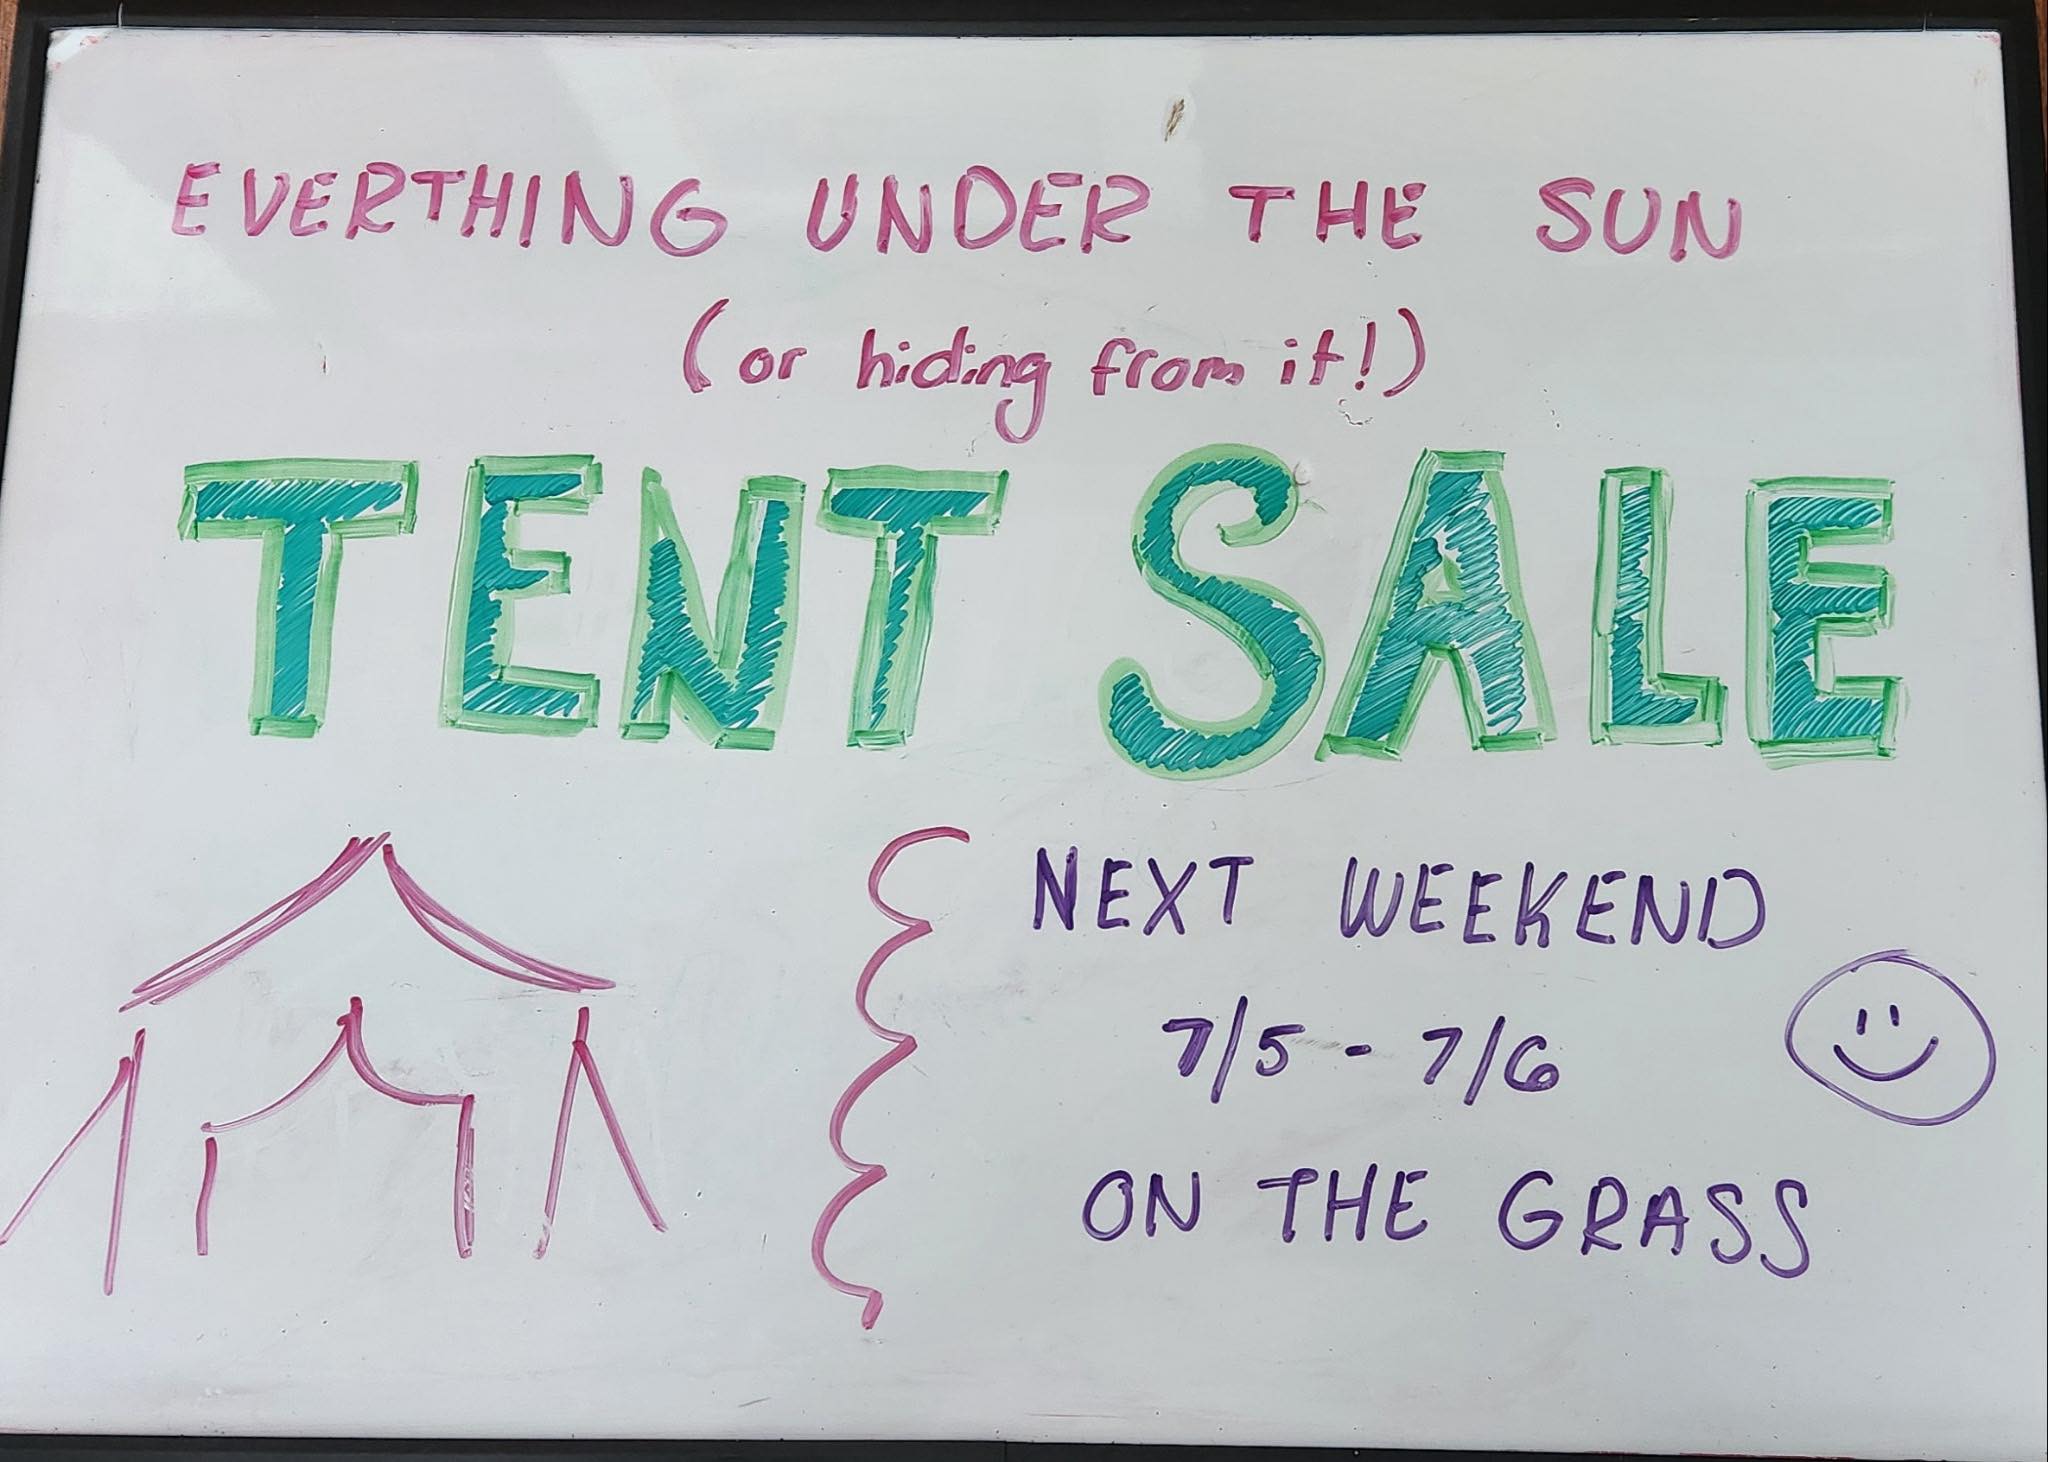 EVERTHING UNDER THE SUN
(or hiding from it!)
TENT SALE
NEXT WEEKEND
7/5 - 7/6
ON THE GRASS